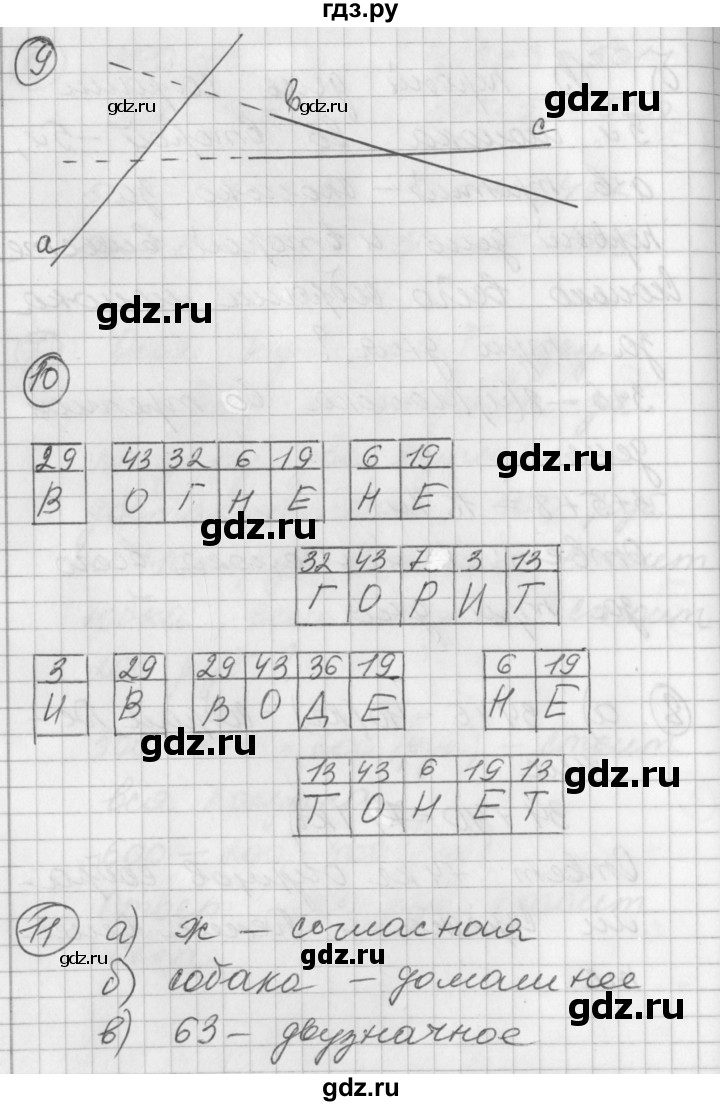 гдз.ру
9
gdz.ru gdz.ru gdz.ru
в
с
а
gdz.ru
10
29 43 32 6 19 6 19
В О Г Н Е Н Е
gdz.ru
gdz.ru
32 43 7 3 13
Г О Р И Т
3 29 29 43 36 19 6 19
И В В О Д Е Н Е
gdz.ru
13 43 6 19 13
gdz.ru
Т О Н Е Т
11 а) ж – согласная
gdz.ru gdz.ru
б) собака – домашнее
gdz.ru
в) 63 – двузначное
gdz.ru